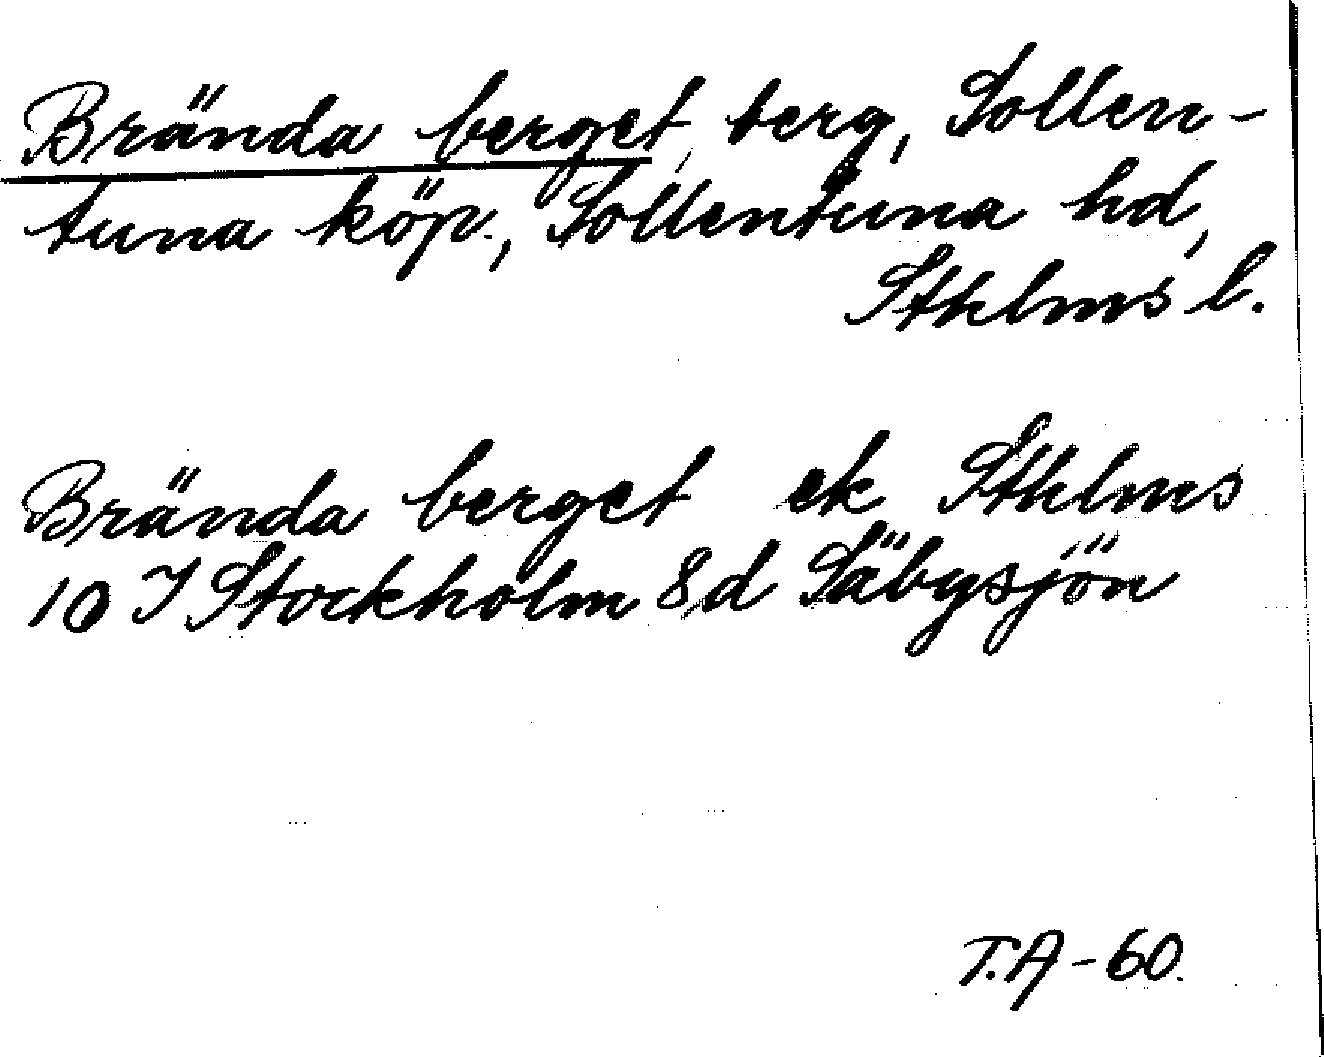 Brända berget, berg, Sollen-
tuna köp., Sollentuna hd,
Sthlms l.
Brända berget ek Sthlms
10 I Stockholm 8d Säbysjön
T.A-60.